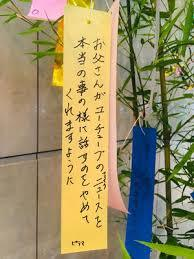 お父さんがユーチューブのニュースを
本当の事の様に話すのをやめて
くれますように